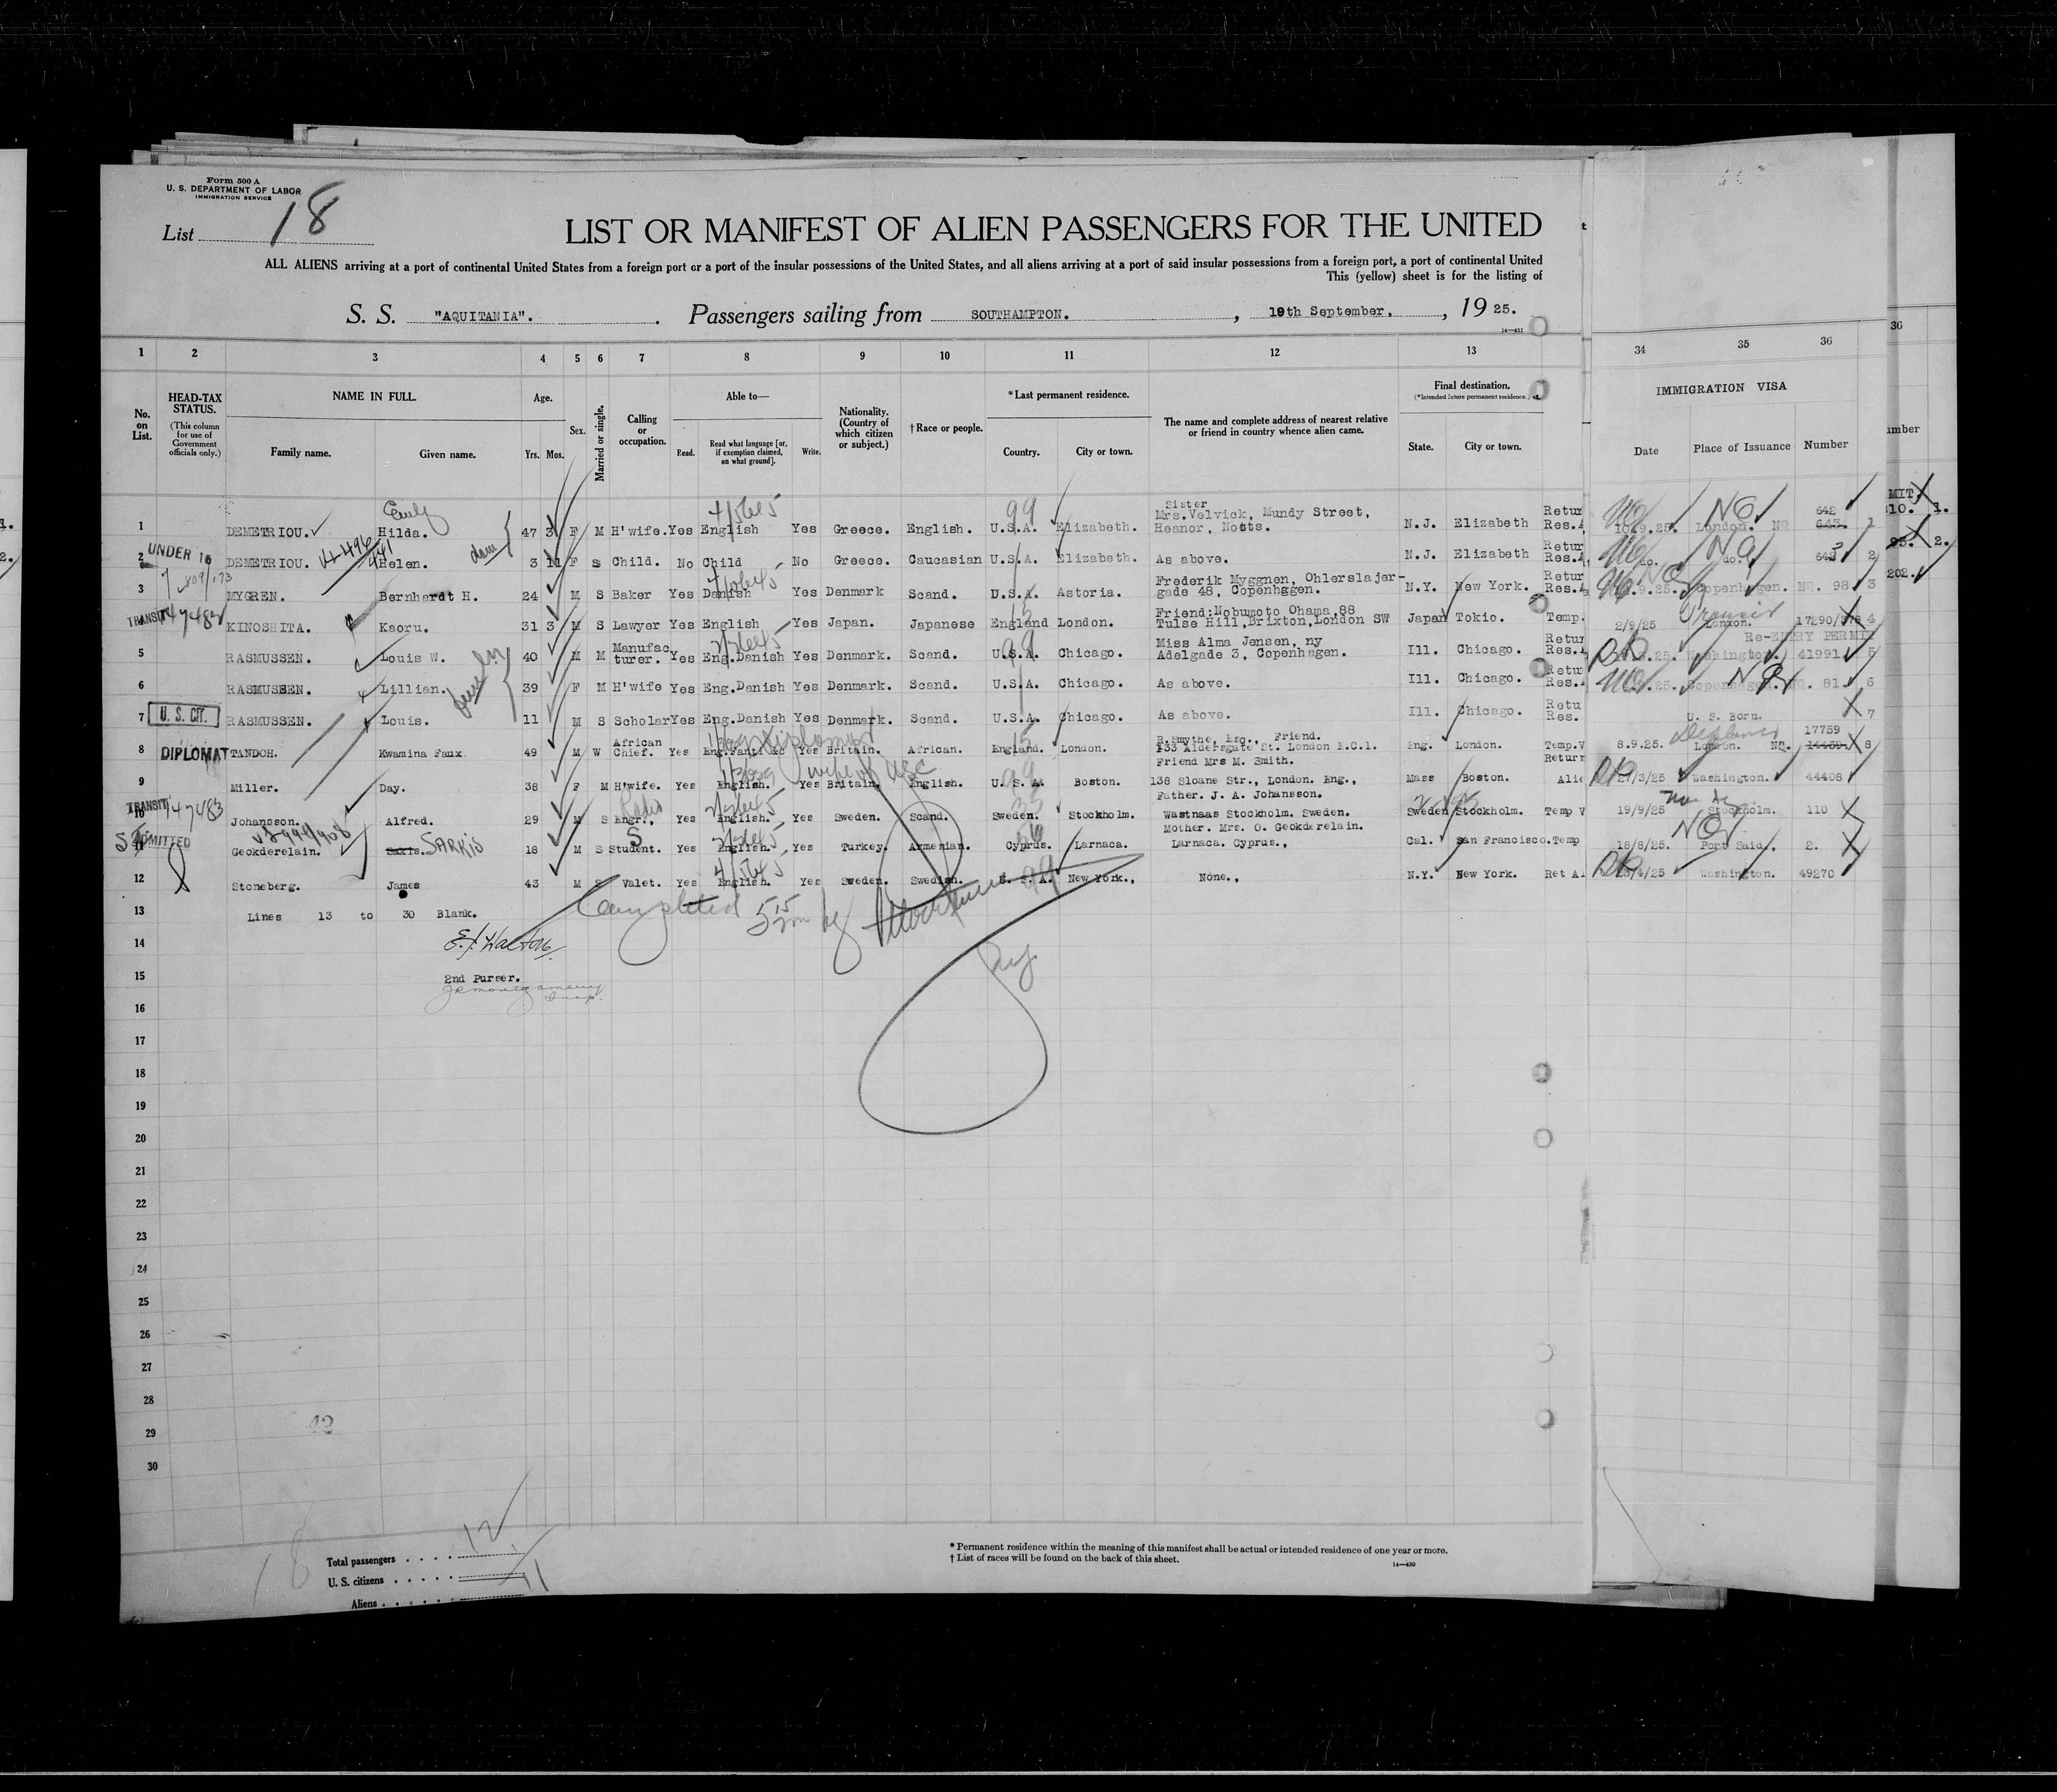 Form 500 A
U. S. DEPARTMENT OF LABOR
IMMIGRATION SERVICE
List 18
LIST OR MANIFEST OF ALIEN PASSENGERS FOR THE UNITED
ALL ALIENS arriving at a port of continental United States from a foreign port or a port of the insular possessions of the United States, and all aliens arriving at a port of said insular possessions from a foreign port, a port of continental United
This (yellow) sheet is for the listing of
S. S. "AQUITANIA". Passengers sailing from SOUTHAMPTON. , 19th September, , 19 25.
14-431
1 2 3 4 5 6 7 8 9 10 11 12 13 34 35 36 36
No. on List.
HEAD-TAX STATUS. (This column for use of Government officials only.)
NAME IN FULL.
Family name. Given name.
Age.
Yrs. Mos.
Sex.
Married or single.
Calling or occupation.
Able to—
Read. Read what language [or, if exemption claimed, on what ground]. Write.
Nationality. (Country of which citizen or subject.)
†Race or people.
*Last permanent residence.
Country. City or town.
The name and complete address of nearest relative or friend in country whence alien came.
Final destination.
(*Intended future permanent residence.)
State. City or town.
IMMIGRATION VISA
Date Place of Issuance Number
umber
Emily
Sister
1 DEMETRIOU. Hilda. 47 3 F M H'wife. Yes English Yes Greece. English. U.S.A. Elizabeth. Mrs. Velvick, Mundy Street, Heanor, Notts. N.J. Elizabeth Retur Res.A 10.9.25. London. NO 642 643. 1
UNDER 16
2 DEMETRIOU. Helen. 3 11 F S Child. No Child No Greece. Caucasian U.S.A. Elizabeth. As above. N.J. Elizabeth Retur Res.A do. do. 643 2
3 MYGREN. Bernhardt H. 24 M S Baker Yes Danish Yes Denmark Scand. U.S.A. Astoria. Frederik Myggnen, Ohlerslajer-gade 48, Copenhagen. N.Y. New York. Retur Res.A .9.25. Copenhagen. NO. 98 3
TRANSIT 47482
4 KINOSHITA. Kaoru. 31 3 M S Lawyer Yes English Yes Japan. Japanese England London. Friend: Nobumoto Ohama, 88 Tulse Hill, Brixton, London SW Japan Tokio. Temp. 2/9/25 London. Transit 17290/378 4
RE-ENTRY PERMIT
5 RASMUSSEN. Louis W. 40 M M Manufacturer. Yes Eng.Danish Yes Denmark. Scand. U.S.A. Chicago. Miss Alma Jensen, ny Adelgade 3, Copenhagen. Ill. Chicago. Retur Res.A .25. Washington. 41991 5
6 RASMUSSEN. Lillian. 39 F M H'wife Yes Eng.Danish Yes Denmark. Scand. U.S.A. Chicago. As above. Ill. Chicago. Retur Res.A .25. Copenhagen. NO. 81. 6
7 U. S. CIT. RASMUSSEN. Louis. 11 M S Scholar Yes Eng.Danish Yes Denmark. Scand. U.S.A. Chicago. As above. Ill. Chicago. Retu Res. U. S. Born. 7
8 DIPLOMAT TANDOH. Kwamina Faux. 49 M W African Chief. Yes Eng.Fanti &c Yes Britain. African. England. London. R. Smythe, Esq., Friend. 133 Aldersgate St. London E.C.1. Eng. London. Temp.V 8.9.25. London. Diplomat NO. 17759 14459. 8
9 Miller. Day. 38 F M H'wife. Yes English. Yes Britain. English. U.S.A. Boston. Friend Mrs M. Smith. 138 Sloane Str., London. Eng., Mass Boston. Return Alie 27/3/25 Washington. 44408
wife of USC
TRANSIT 47483
10 Johansson. Alfred. 29 M S Engr., Yes English. Yes Sweden. Scand. Sweden. Stockholm. Father. J. A. Johansson. Wastnaas Stockholm. Sweden. Sweden Stockholm. Temp V 19/9/25 Stockholm. 110
ADMITTED
11 Geokderelain. Sakis. SARKIS 18 M S Student. Yes English. Yes Turkey. Armenian. Cyprus. Larnaca. Mother. Mrs. O. Geokderelain. Larnaca. Cyprus., Cal. San Francisco. Temp 18/8/25. Port Said, 2.
12 Stoneberg. James 43 M S Valet. Yes English. Yes Sweden. Swedish. U.S.A. New York., None., N.Y. New York. Ret A. /4/25 Washington. 49270
13 Lines 13 to 30 Blank.
Completed
14 E. J. Walton.
15 2nd Purser.
J R Montgomery
Insp.
16
17
18
19
20
21
22
23
24
25
26
27
28
29
30
Total passengers 12
U. S. citizens 1
Aliens 11
18
* Permanent residence within the meaning of this manifest shall be actual or intended residence of one year or more.
† List of races will be found on the back of this sheet.
14-430